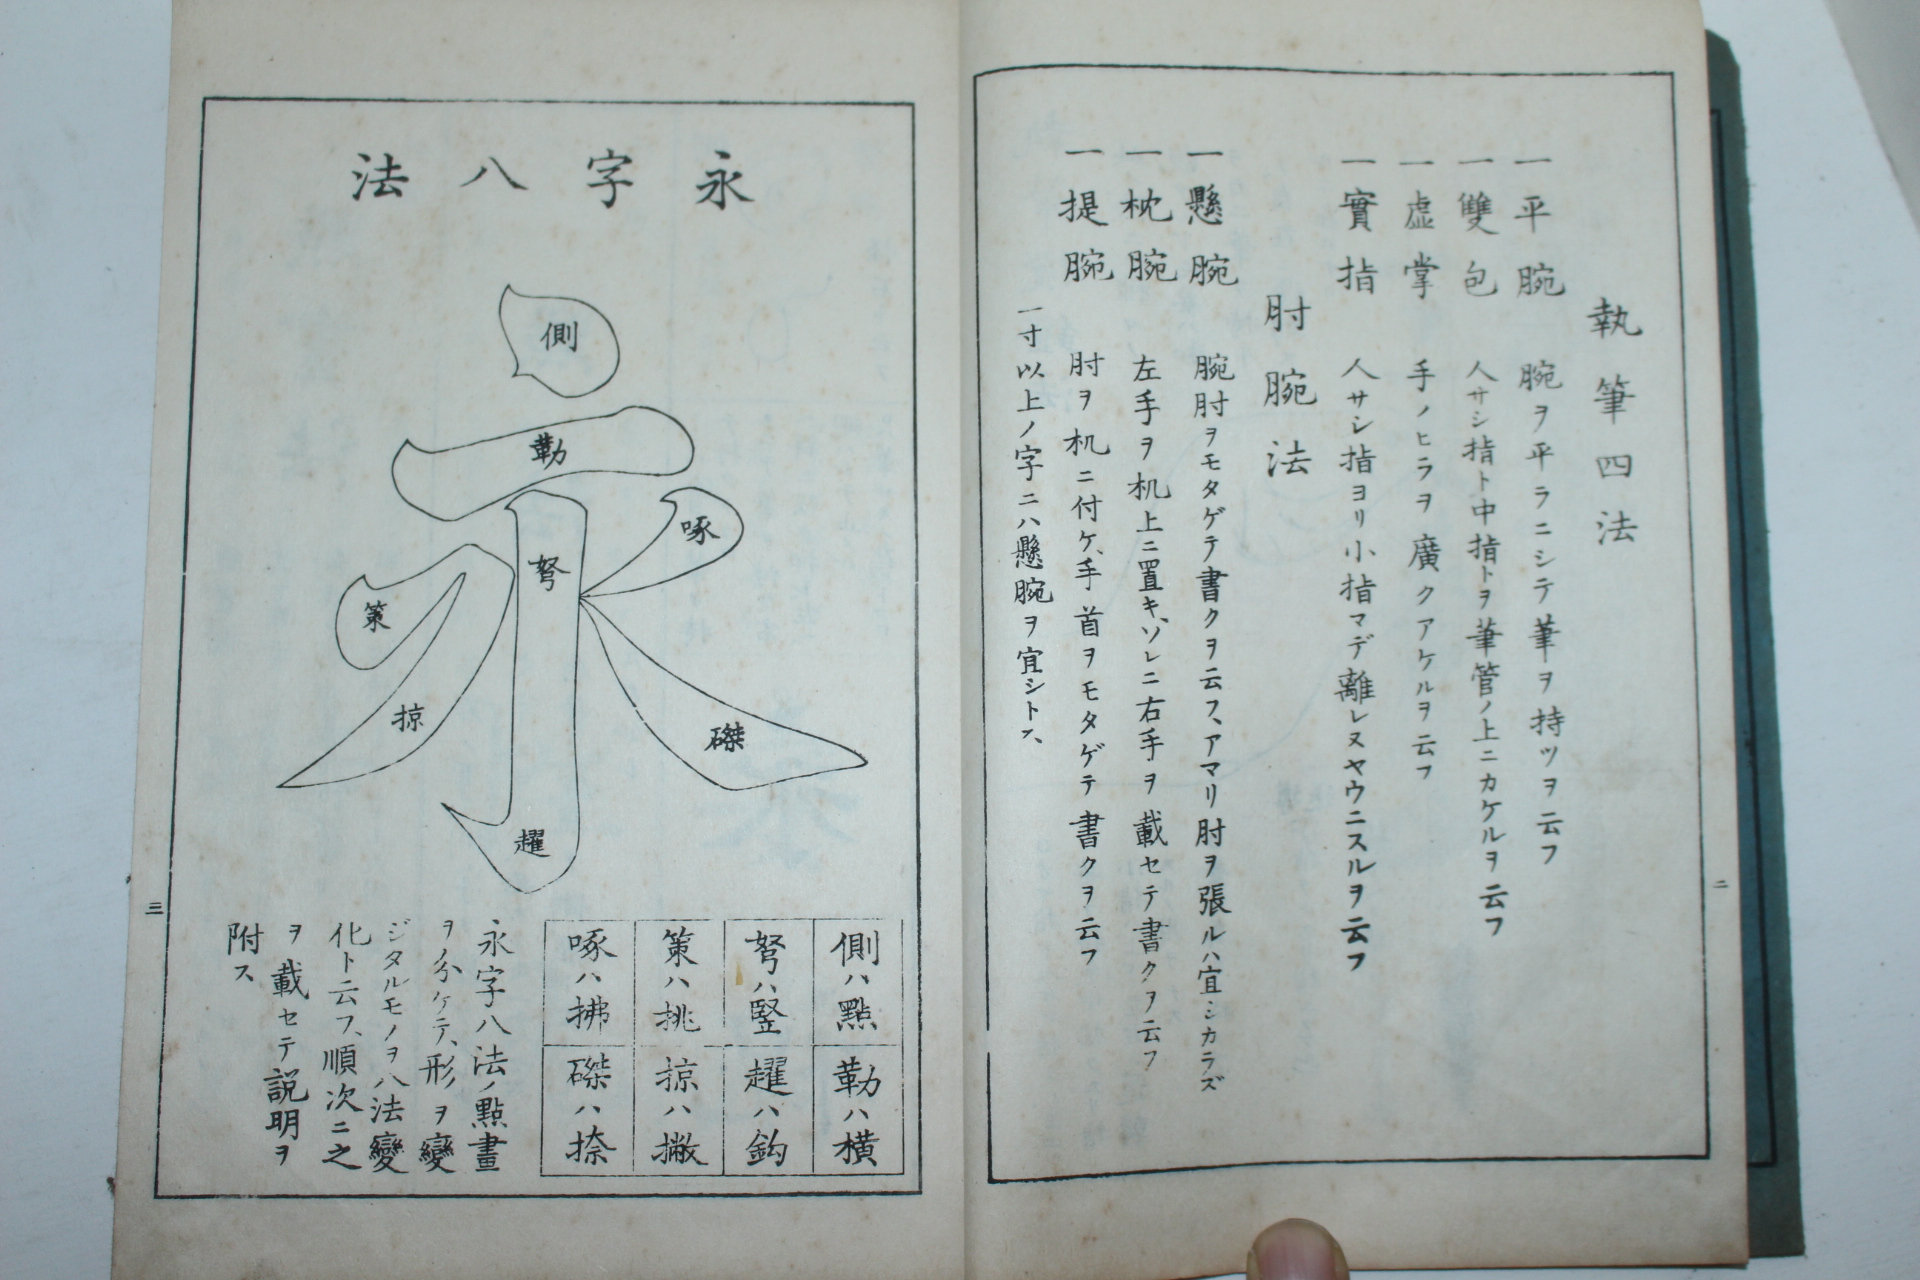 執筆四法
一平腕 腕ヲ平ラニシテ筆ヲ持ツヲ云フ
一雙包 人サシ指ト中指トヲ筆管ノ上ニカケルヲ云フ
一虚掌 手ノヒラヲ廣クアケルヲ云フ
一實指 人サシ指ヨリ小指マデ離レヌヤウニスルヲ云フ
肘腕法
一懸腕 腕肘ヲモタゲテ書クヲ云フ、アマリ肘ヲ張ルハ宜シカラズ
一枕腕 左手ヲ机上ニ置キ、ソレニ右手ヲ載セテ書クヲ云フ
一提腕 肘ヲ机ニ付ケ、手首ヲモタゲテ書クヲ云フ
一寸以上ノ字ニハ懸腕ヲ宜シトス、
二
永字八法
側
勒
努
啄
策
掠
磔
趯
側ハ點
勒ハ横
努ハ竪
趯ハ鈎
策ハ挑
掠ハ撇
啄ハ拂
磔ハ捺
永字八法ノ點畫
ヲ分ケテ、形ヲ變
ジタルモノヲ八法變
化ト云フ、順次ニ之
ヲ載セテ説明ヲ
附ス
三